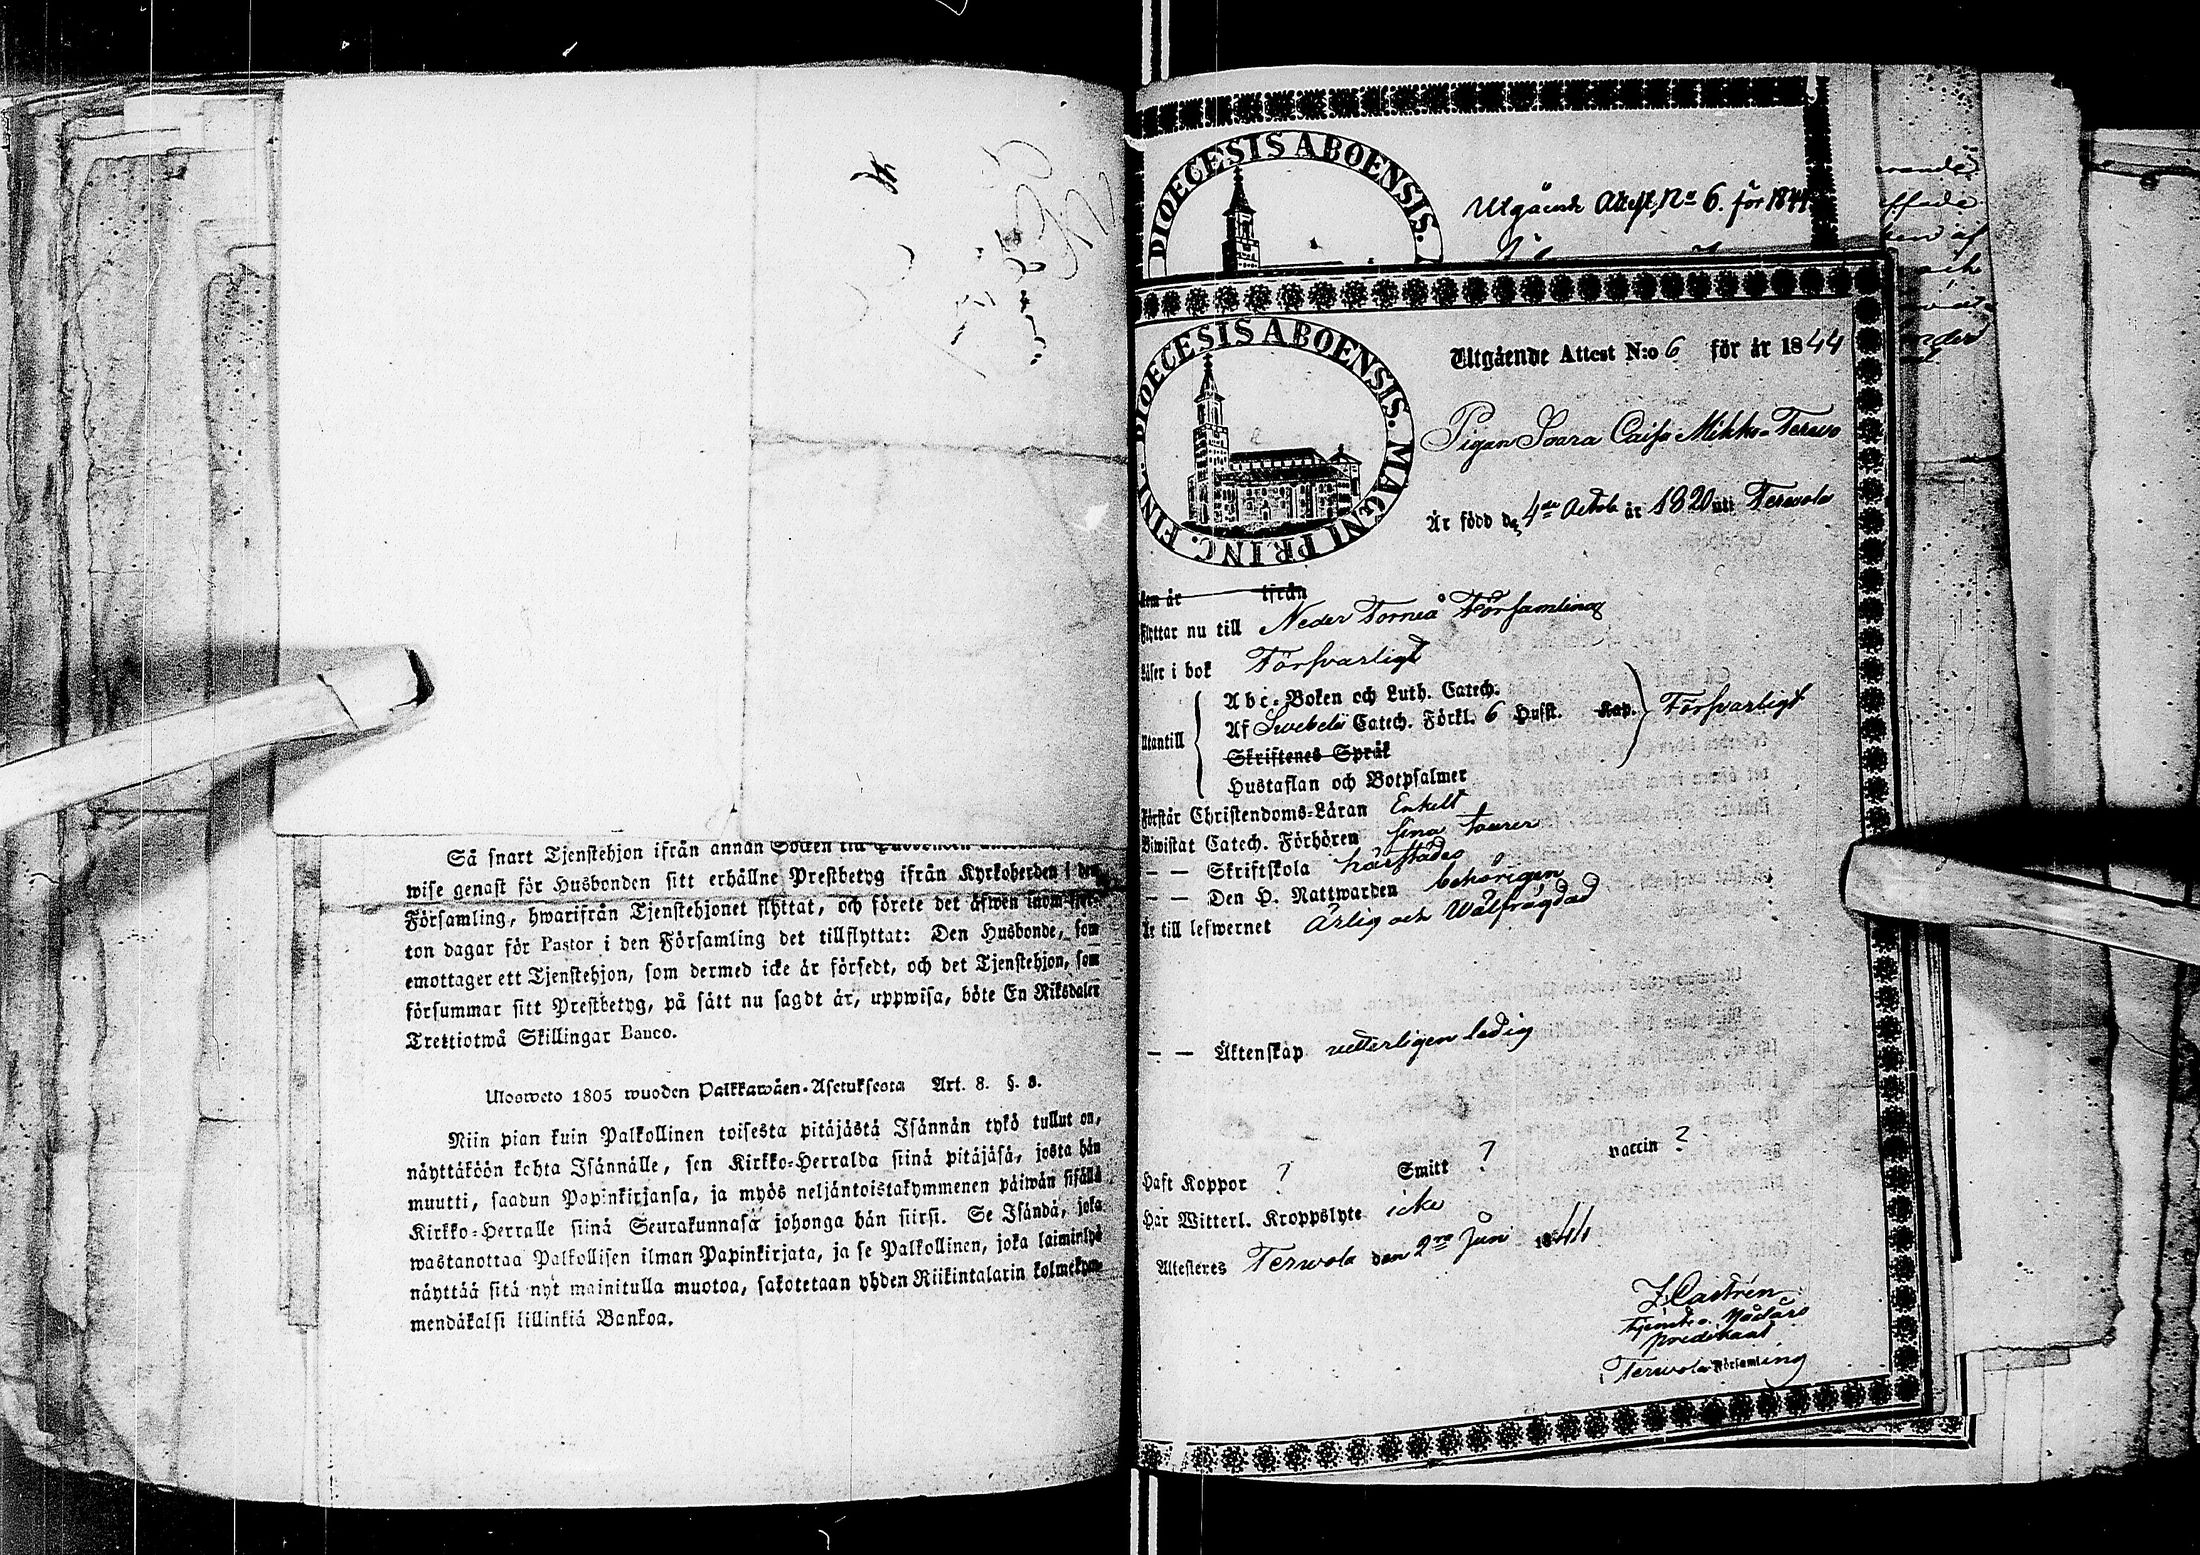 Så snart Tjenstehjon ifrån annan
wise genast för Husbonden sitt erhållne Prestbetyg ifrån Kyrkoherden i den
Församling, hwarifrån Tjenstehjonet flyttat, och förete det äfwen inom fjor-
ton dagar för Pastor i den Församling det tillflyttat: Den Husbonde, som
emottager ett Tjenstehjon, som dermed icke är försedt, och det Tjenstehjon, som
försummar sitt Prestbetyg, på sätt nu sagdt är, uppwisa, böte En Riksdaler
Trettiotwå Skillingar Banco.
Ulosweto 1805 wuoden Palkkawäen-Asetuksesta Art. 8. §. 3.
Niin pian kuin Palkollinen toisesta pitäjästä Isännän tykö tullut on,
näyttäköön kohta Isännälle, sen Kirkko-Herralda siinä pitäjäsä, josta hän
muutti, saadun Papinkirjansa, ja myös neljäntoistakymmenen päiwän sisällä
Kirkko-Herralle siinä Seurakunnasa johonga hän siirsi. Se Isändä, joka
wastanottaa Palkollisen ilman Papinkirjata, ja se Palkollinen, joka laiminlyö
näyttää sitä nyt mainitulla muotoa, sakotetaan yhden Riikintalarin kolmekym-
mendäkaksi killinkiä Bankoa.
DIOECESIS ABOENSIS.
Utgående Attest No 6. för 1844
DIOECESIS ABOENSIS. MAGNI PRINC. FINL.
Utgående Attest N:o 6 för år 1844
Pigan Saara Caisa Mikko-Terwo
Är född den 4de Octob år 1820 uti Terwola
kom år ifrån
Flyttar nu till Neder Torneå Församling
Läser i bok Försvarligt
Abc-Boken och Luth. Catech.
Utantill Af Swebelii Catech. Förkl. 6 Hufst. Kap. Försvarligt
Skriftenes Språk
Hustaflan och Botpsalmer
Förstår Christendoms-Läran Enkelt
Biwistat Catech. Förhören sina tourer
— — Skriftskola härstädes
— — Den H. Nattwarden behörigen
Är till lefwernet Ärlig och Wälfrägdad
— — Äktenskap vetterligen ledig
Haft Koppor ? Smitt ? vaccin ?
Har Witterl. Kroppslyte icke
Attesteres Terwola den 2ra Juni 1844
J. Castrén
tjenstg. Nådårs
predikant
Terwola Församling